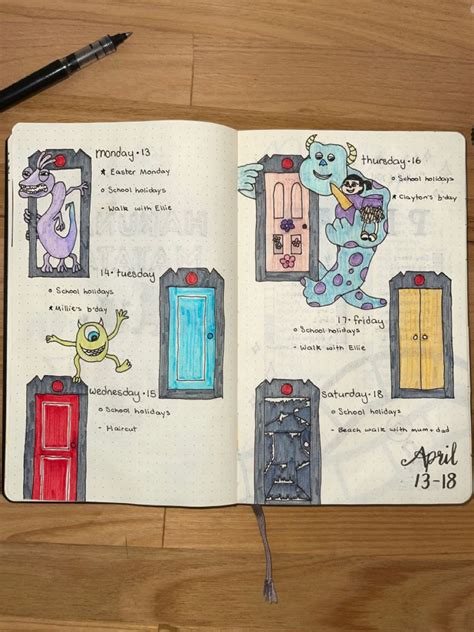 monday • 13
★ Easter Monday
○ School holidays
- Walk with Ellie
14 • tuesday
○ School holidays
★ Millie's b'day
wednesday • 15
○ School holidays
- Haircut
thursday • 16
○ School holidays
★ Clayton's b'day
17 • friday
○ School holidays
- Walk with Ellie
saturday • 18
○ School holidays
- Beach walk with mum + dad
April
13-18